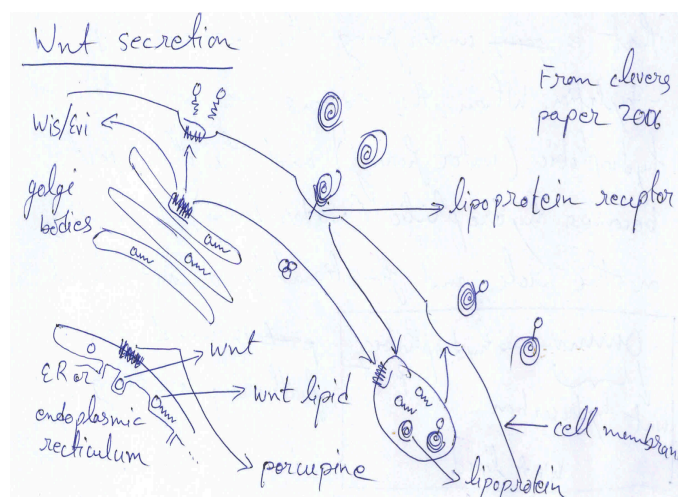 Wnt secretion
From clevers
paper 2006
Wis/Evi
golgi
bodies
lipoprotein receptor
wnt
ER or
wnt lipid
endoplasmic
recticulum
porcupine
lipoprotein
cell membran